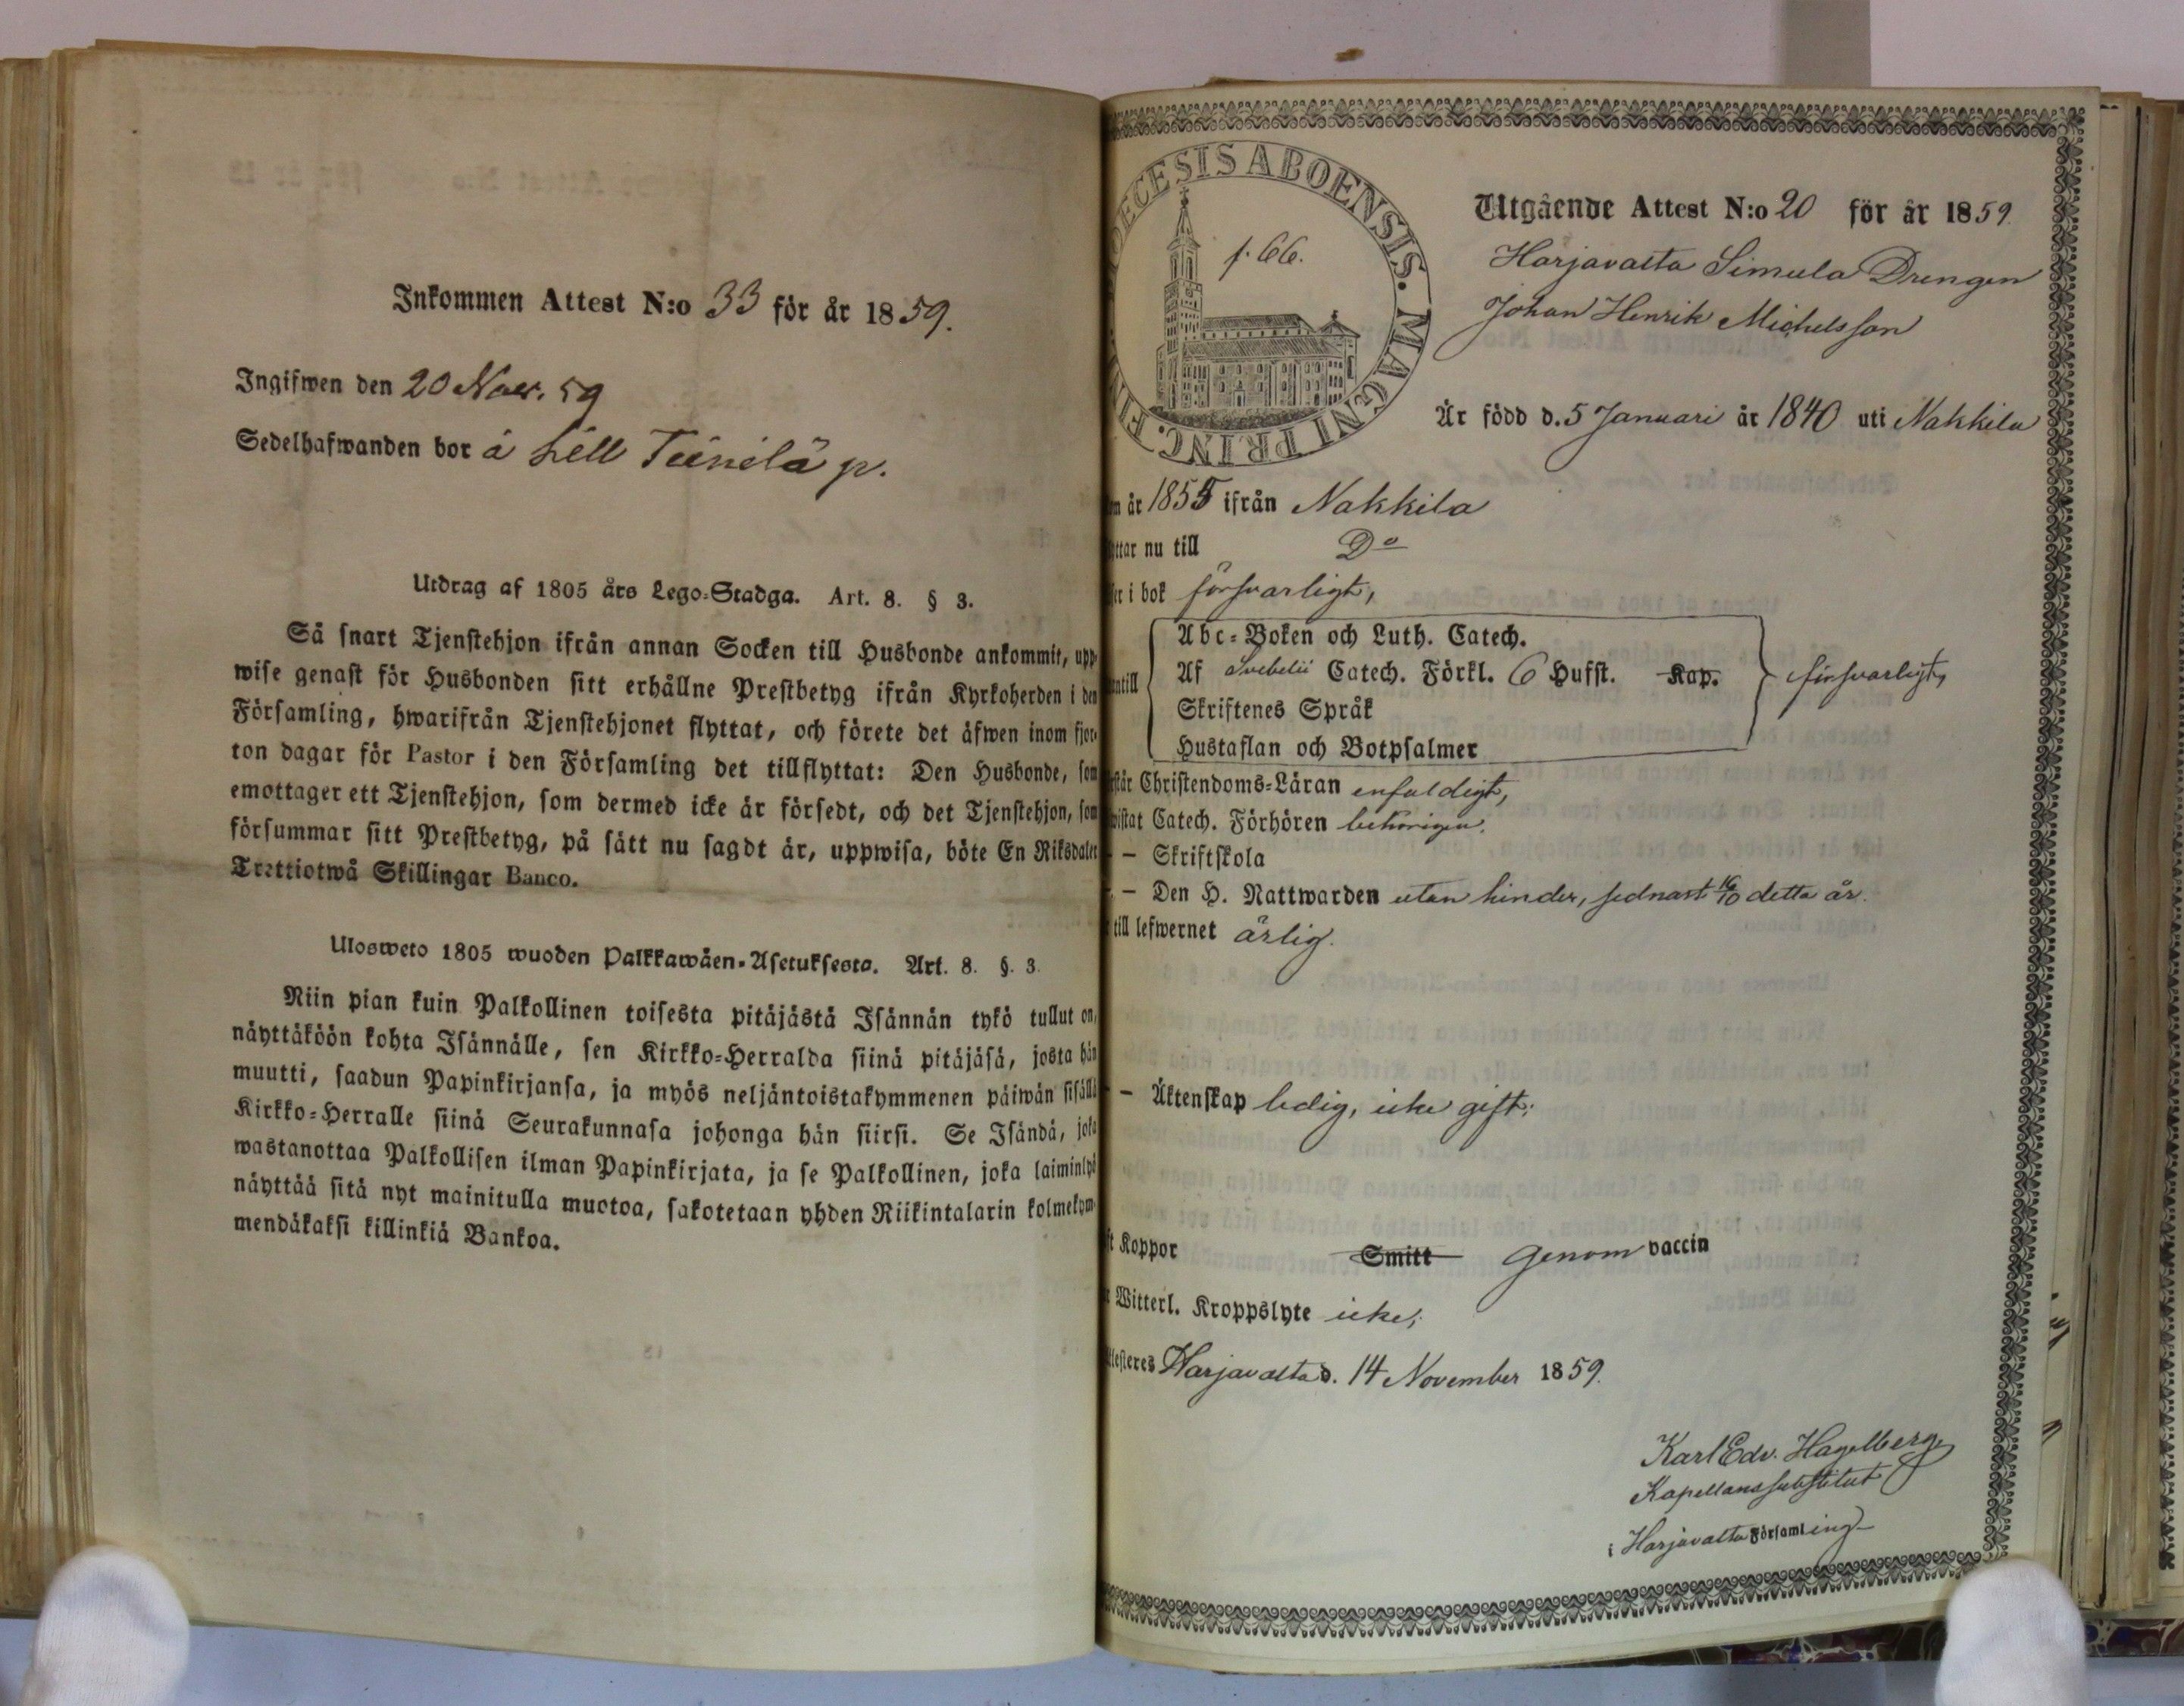 Inkommen Attest N:o 33 för år 1859.
Ingifwen den 20 Nov. 59
Sedelhafwanden bor å Lill Tiinilä p.
Utdrag af 1805 års Lego-Stadga. Art. 8. § 3.
Så snart Tjenstehjon ifrån annan Socken till Husbonde ankommit, upp-
wise genast för Husbonden sitt erhållne Prestbetyg ifrån Kyrkoherden i den
Församling, hwarifrån Tjenstehjonet flyttat, och förete det äfwen inom fjor-
ton dagar för Pastor i den Församling det tillflyttat: Den Husbonde, som
emottager ett Tjenstehjon, som dermed icke är försedt, och det Tjenstehjon, som
försummar sitt Prestbetyg, på sätt nu sagdt är, uppwisa, böte En Riksdaler
Trettiotwå Skillingar Banco.
Ulosweto 1805 wuoden Palkkawäen-Asetuksesta. Art. 8. §. 3.
Niin pian kuin Palkollinen toisesta pitäjästä Isännän tykö tullut on,
näyttäköön kohta Isännälle, sen Kirkko-Herralda siinä pitäjäsä, josta hän
muutti, saadun Papinkirjansa, ja myös neljäntoistakymmenen päiwän sisällä
Kirkko-Herralle siinä Seurakunnasa johonga hän siirsi. Se Isändä, joka
wastanottaa Palkollisen ilman Papinkirjata, ja se Palkollinen, joka laiminlyö
näyttää sitä nyt mainitulla muotoa, sakotetaan yhden Riikintalarin kolmekym-
mendäkaksi killinkiä Bankoa.
ECESIS ABOENSIS. MAGNI PRINC. FIN
p. 66.
Utgående Attest N:o 20 för år 1859.
Harjavalta Simula Drengen
Johan Henrik Michelsson
Är född d. 5 Januari år 1840 uti Nakkila
m år 1855 ifrån Nakkila
ttar nu till Do
er i bok försvarligt,
Abc-Boken och Luth. Catech.
ntill Af Svebelii Catech. Förkl. 6 Hufst. Kap. försvarligt,
Skriftenes Språk
Hustaflan och Botpsalmer
står Christendoms-Läran enfaldigt,
wistat Catech. Förhören behörigen.
— Skriftskola
— Den H. Nattwarden utan hinder, sednast 16/10 detta år.
till lefwernet ärlig.
— Äktenskap ledig, icke gift;
ft Koppor Smitt genom vaccin
Witterl. Kroppslyte icke;
esteres Harjavalta d. 14 November 1859.
Karl Edv. Hagelberg
Kapellanssubstitut
i Harjavalta Församling